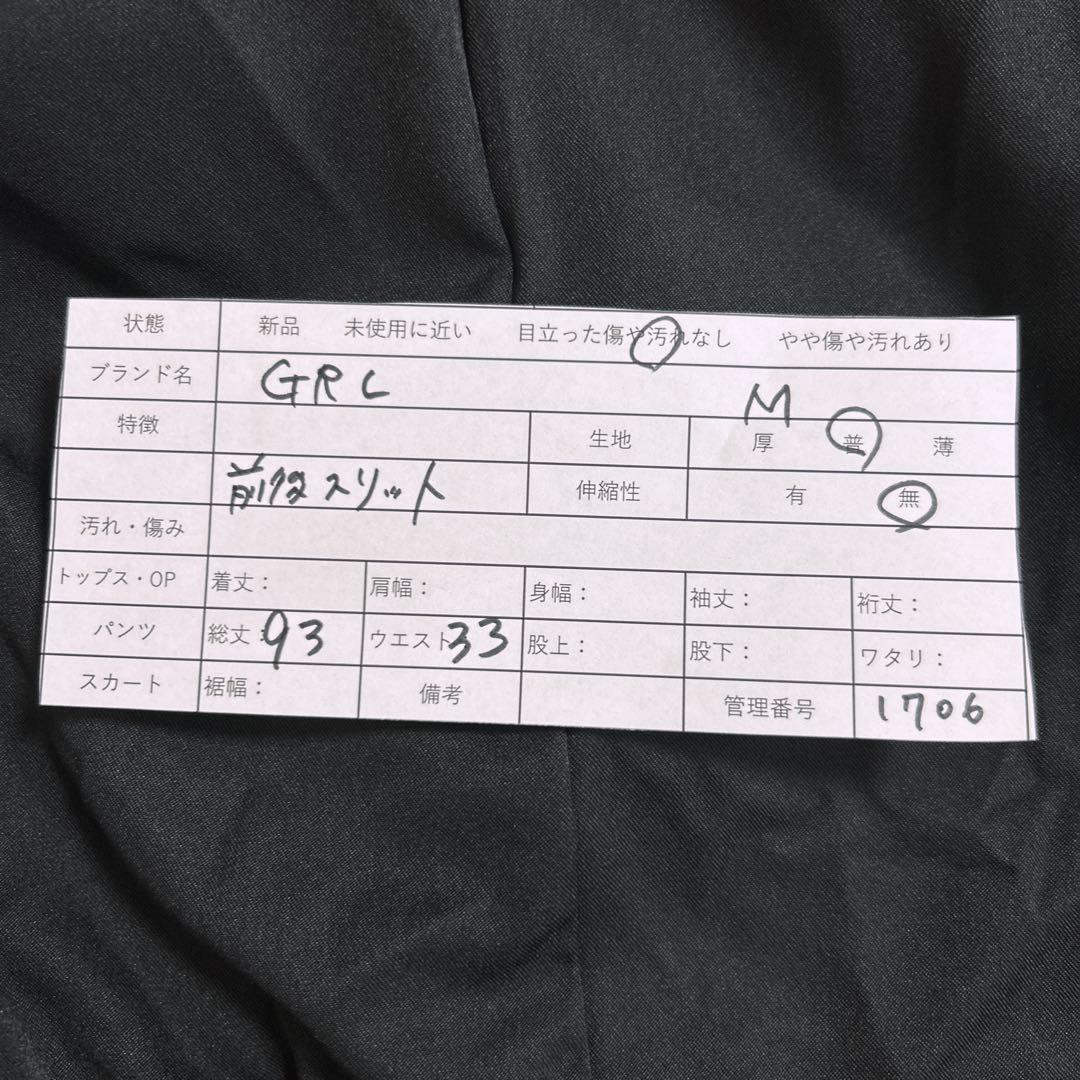 状態 新品 未使用に近い 目立った傷や汚れなし やや傷や汚れあり
ブランド名 GRL M
特徴 生地 厚 普 薄
前後スリット 伸縮性 有 無
汚れ・傷み
トップス・OP 着丈： 肩幅： 身幅： 袖丈： 裄丈：
パンツ 総丈：93 ウエスト33 股上： 股下： ワタリ：
スカート 裾幅： 備考 管理番号 1706